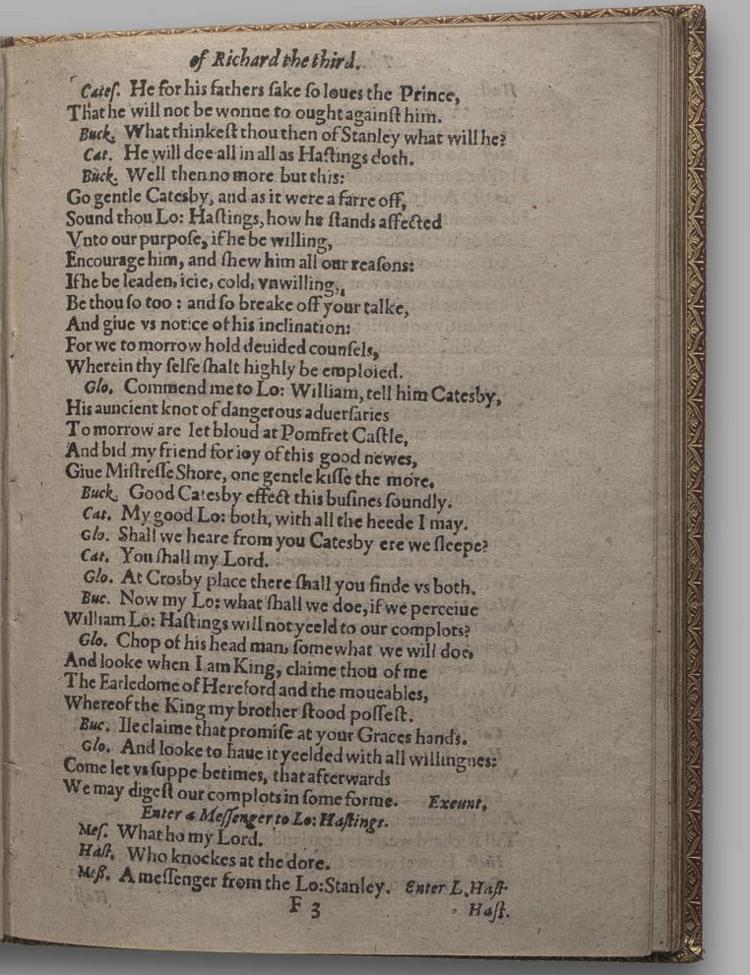 of Richard the third.
Catef. He for his fathers ſake ſo loues the Prince,
That he will not be wonne to ought againſt him.
Buck. What thinkeſt thou then of Stanley what will he?
Cat. He will doe all in all as Haſtings doth.
Buck. Well then no more but this:
Go gentle Catesby, and as it were a farre off,
Sound thou Lo: Haſtings, how he ſtands affected
Vnto our purpoſe, if he be willing,
Encourage him, and ſhew him all our reaſons:
If he be leaden, icie, cold, vnwilling,
Be thou ſo too : and ſo breake off your talke,
And giue vs notice of his inclination:
For we to morrow hold deuided counſels,
Wherein thy ſelfe ſhalt highly be emploied.
Glo. Commend me to Lo: William, tell him Catesby,
His auncient knot of dangerous aduerſaries
To morrow are let bloud at Pomfret Caſtle,
And bid my friend for ioy of this good newes,
Giue Miſtreſſe Shore, one gentle kiſſe the more.
Buck. Good Catesby effect this buſines ſoundly.
Cat. My good Lo: both, with all the heede I may.
Glo. Shall we heare from you Catesby ere we ſleepe?
Cat. You ſhall my Lord.
Glo. At Crosby place there ſhall you finde vs both.
Buc. Now my Lo: what ſhall we doe, if we perceiue
William Lo: Haſtings will not yeeld to our complots?
Glo. Chop of his head man, ſomewhat we will doe,
And looke when I am King, claime thou of me
The Earledome of Hereford and the moueables,
Whereof the King my brother ſtood poſſeſt.
Buc. Ile claime that promiſe at your Graces hands.
Glo. And looke to haue it yeelded with all willingnes:
Come let vs ſuppe betimes, that afterwards
We may digeſt our complots in ſome forme. Exeunt.
Enter a Meſſenger to Lo: Haſtings.
Meſ. What ho my Lord.
Haſt. Who knockes at the dore.
Meſſ. A meſſenger from the Lo: Stanley. Enter L. Haſt.
F 3 Haſt.